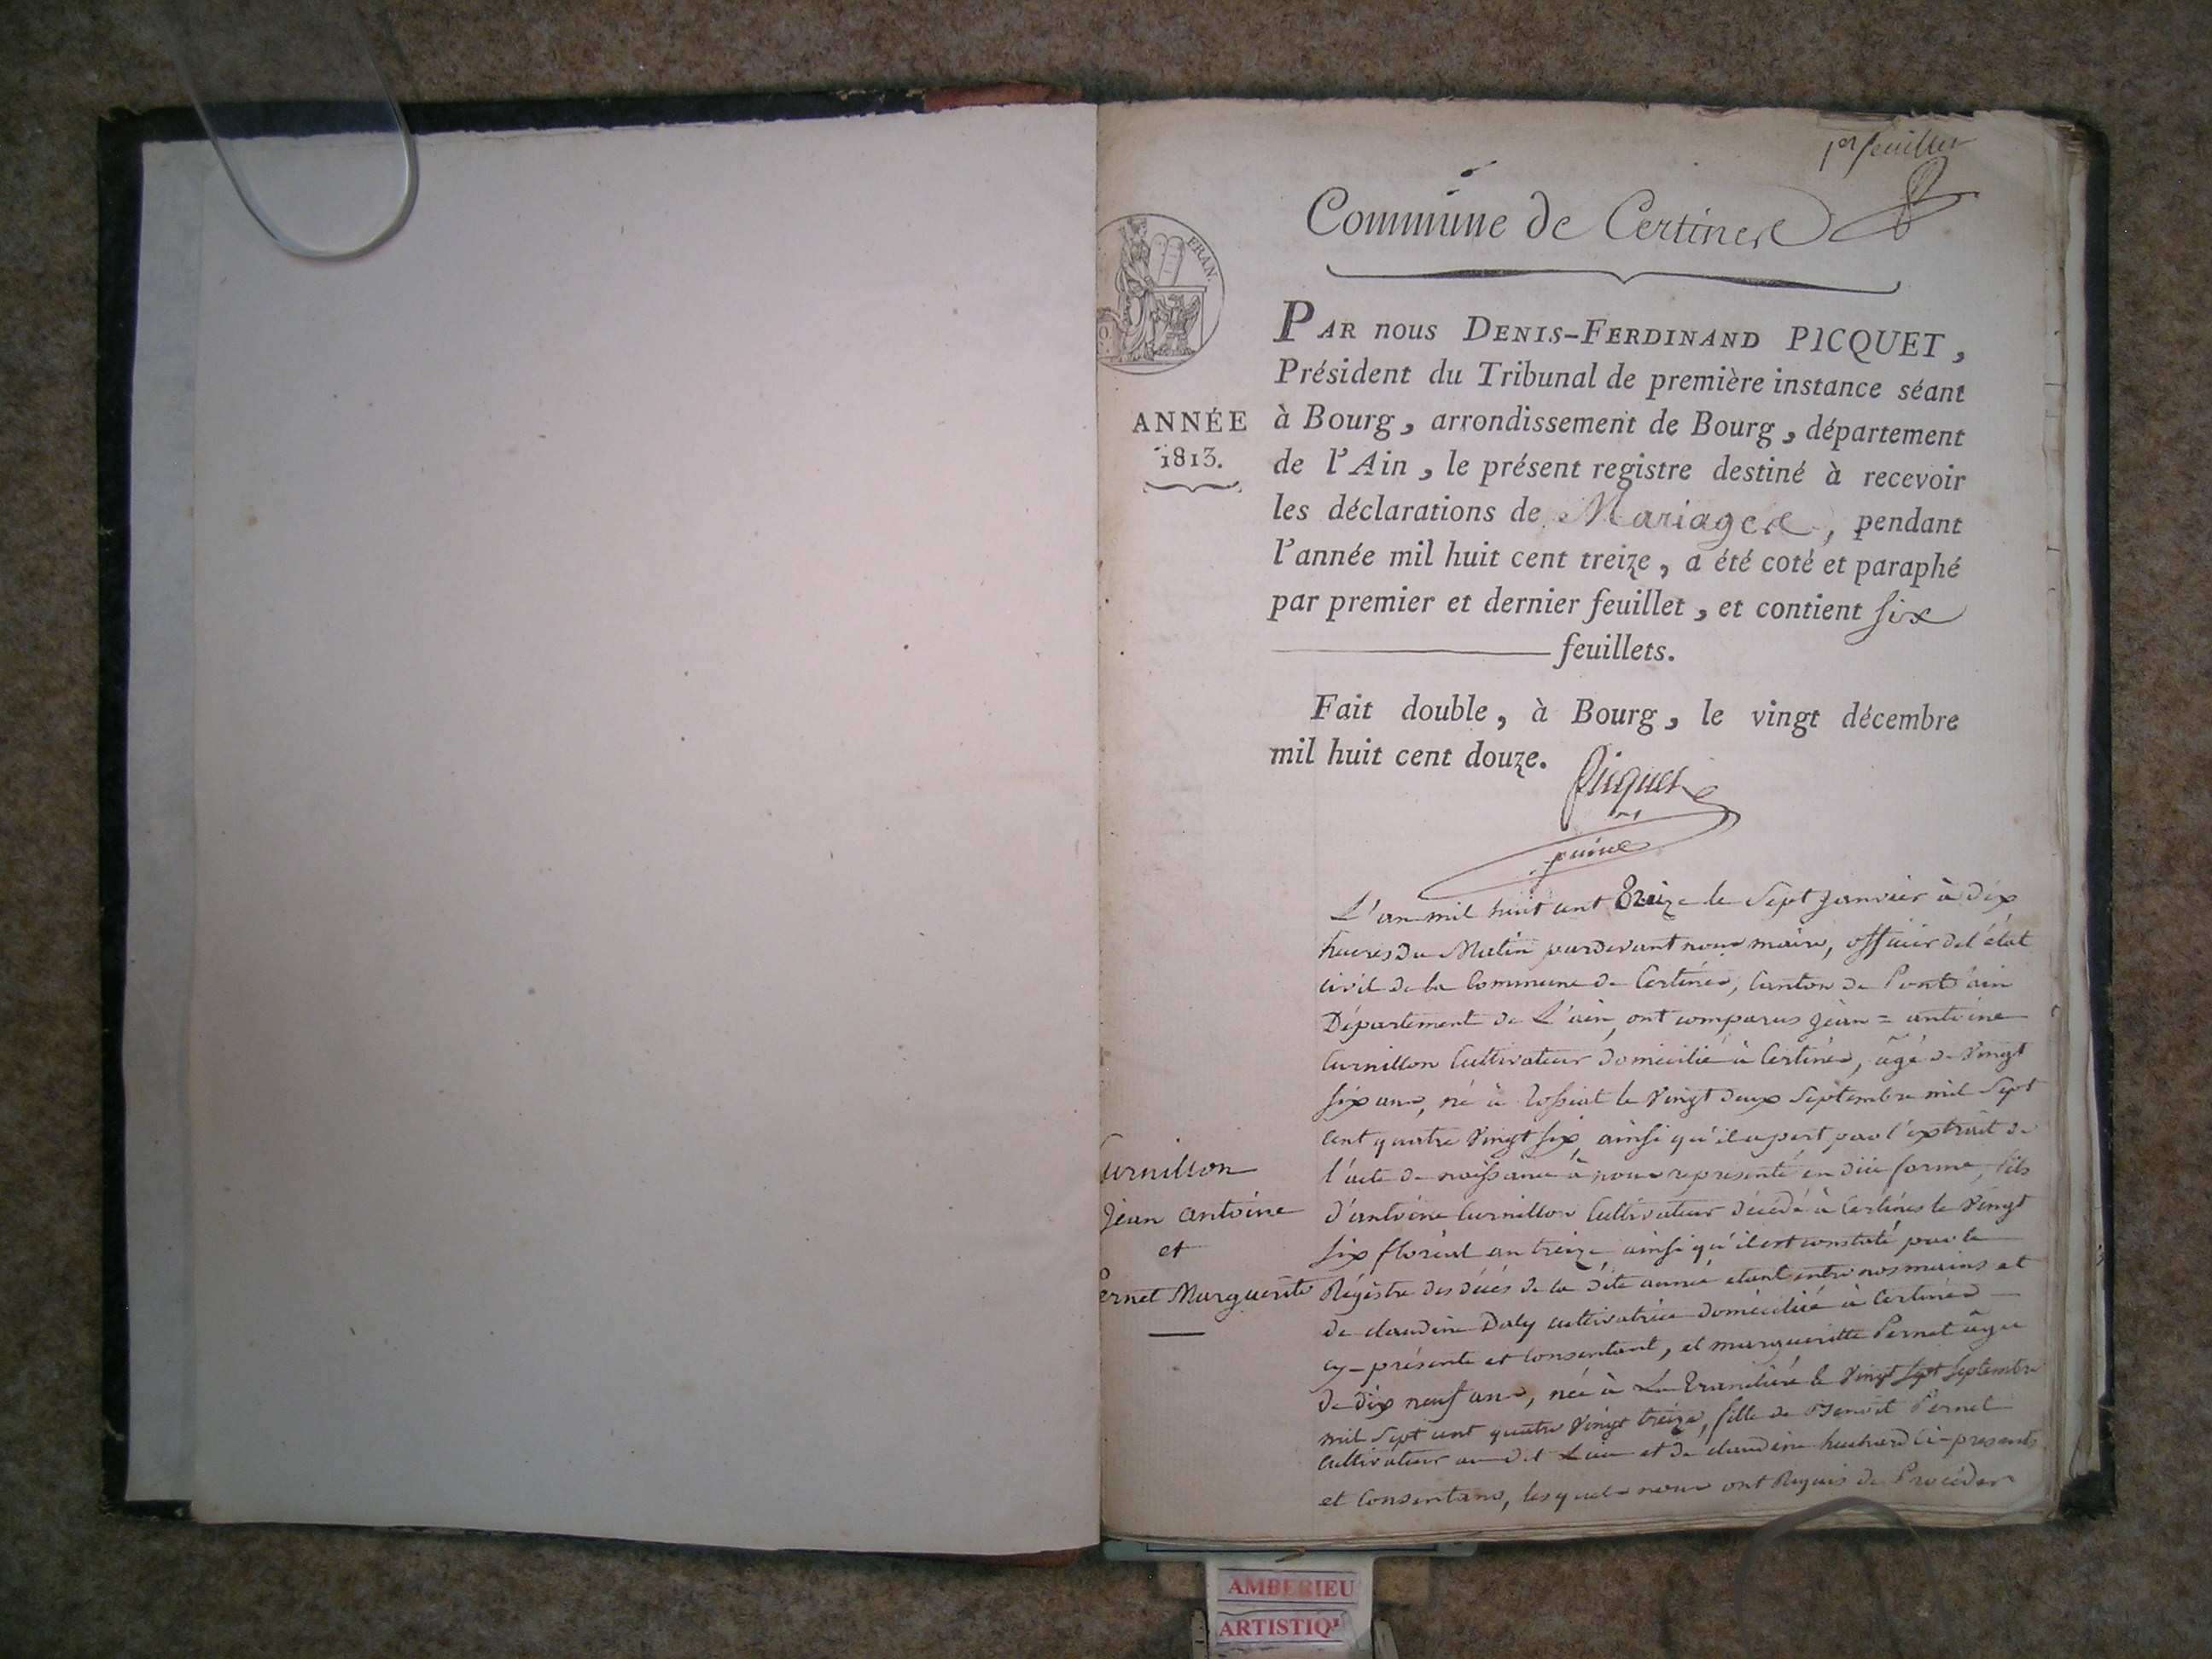 1er feuillet
Commune de Certines
FRAN.
ANNÉE
1813.
PAR nous DENIS-FERDINAND PICQUET,
Président du Tribunal de première instance séant
à Bourg, arrondissement de Bourg, département
de l'Ain, le présent registre destiné à recevoir
les déclarations de Mariages, pendant
l'année mil huit cent treize, a été coté et paraphé
par premier et dernier feuillet, et contient six
feuillets.
Fait double, à Bourg, le vingt décembre
mil huit cent douze.
Picquet
L'an mil huit cent Treize le Sept Janvier à dix
heures du Matin pardevant nous maire, officier de l'état
civil de la Commune de Certines, Canton de Pont d'ain
Département de L'ain, ont comparus Jean = antoine
Curnillon Cultivateur domicilié à Certines, âgé de Vingt
six ans, né à Tossiat le Vingt deux Septembre mil Sept
cent quatre Vingt six, ainsi qu'il apert par l'extrait de
l'acte de naissance à nous représenté en düe forme, fils
d'antoine Curnillon Cultivateur décédé à Certines le Vingt
six floréal an treize ainsi qu'il est constaté par le
Régistre des décés de la dite année étant entre nos mains et
de claudine Daly cultivatrice domiciliée à Certines
cy-présente et Consentant, et margueritte Pernet âgée
de dix neuf ans, née à La Tranclière le Vingt sept Septembre
mil Sept cent quatre Vingt treize, fille de Benoit Pernet
Cultivateur au dit Lieu et de claudine huchard Ci-presents
et Consentans, lesquels nous ont Requis de Procéder
urnillon
Jean antoine
et
ernet Marguerite
AMBERIEU
ARTISTIQ